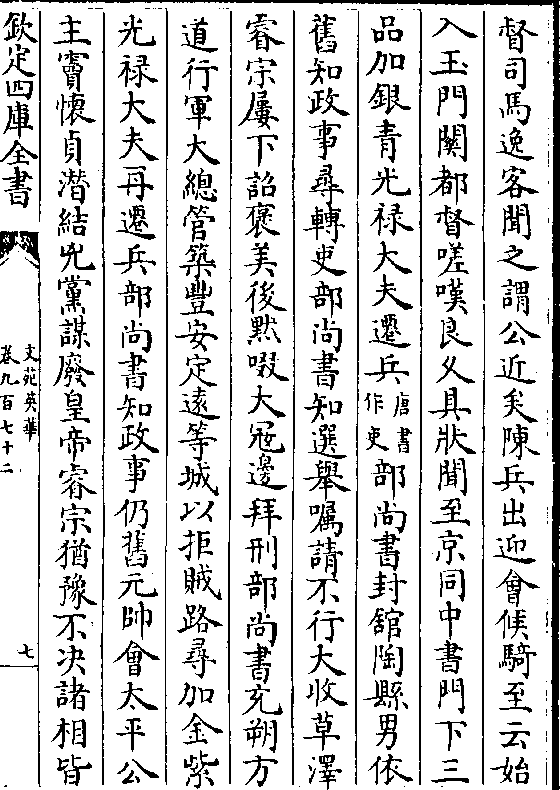 督司馬逸客聞之謂公近矣陳兵出迎會候騎至云始
入玉門關都督嗟嘆良久具狀聞至京同中書門下三
品加銀青光禄大夫遷兵唐書作吏部尚書封館陶縣男依
舊知政事尋轉吏部尚書知選舉囑請不行大收草澤
睿宗屢下詔褒美後黙啜大冦邊拜刑部尚書充朔方
道行軍大總管築豐安定逺等城以拒賊路尋加金紫
光禄大夫再遷兵部尚書知政事仍舊元帥會太平公
主竇懷貞潜結兇黨謀廢皇帝睿宗猶豫不決諸相皆
欽定四庫全書
文苑英華
卷九百七十二
七